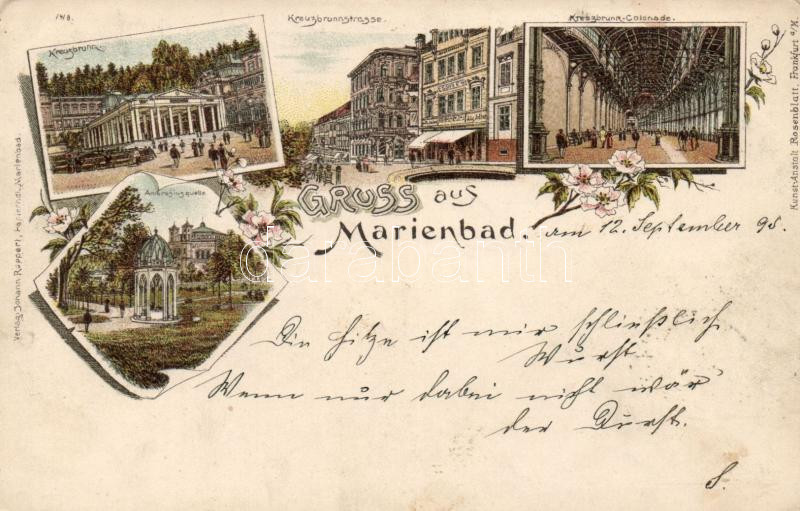 1418.
Kreuzbrunn.
Kreuzbrunnstrasse.
Kreuzbrunn-Colonade.
Ambrosiusquelle
GRUSS aus
Marienbad. am 12. September 98.
Die Hitze ist mir schließlich
Wurst
Wenn nur dabei nicht wär'
der Durst.
S.
Verlag: Johann Ruppert, Marienbad.
Kunst-Anstalt Rosenblatt, Frankfurt a/M.
darabanth